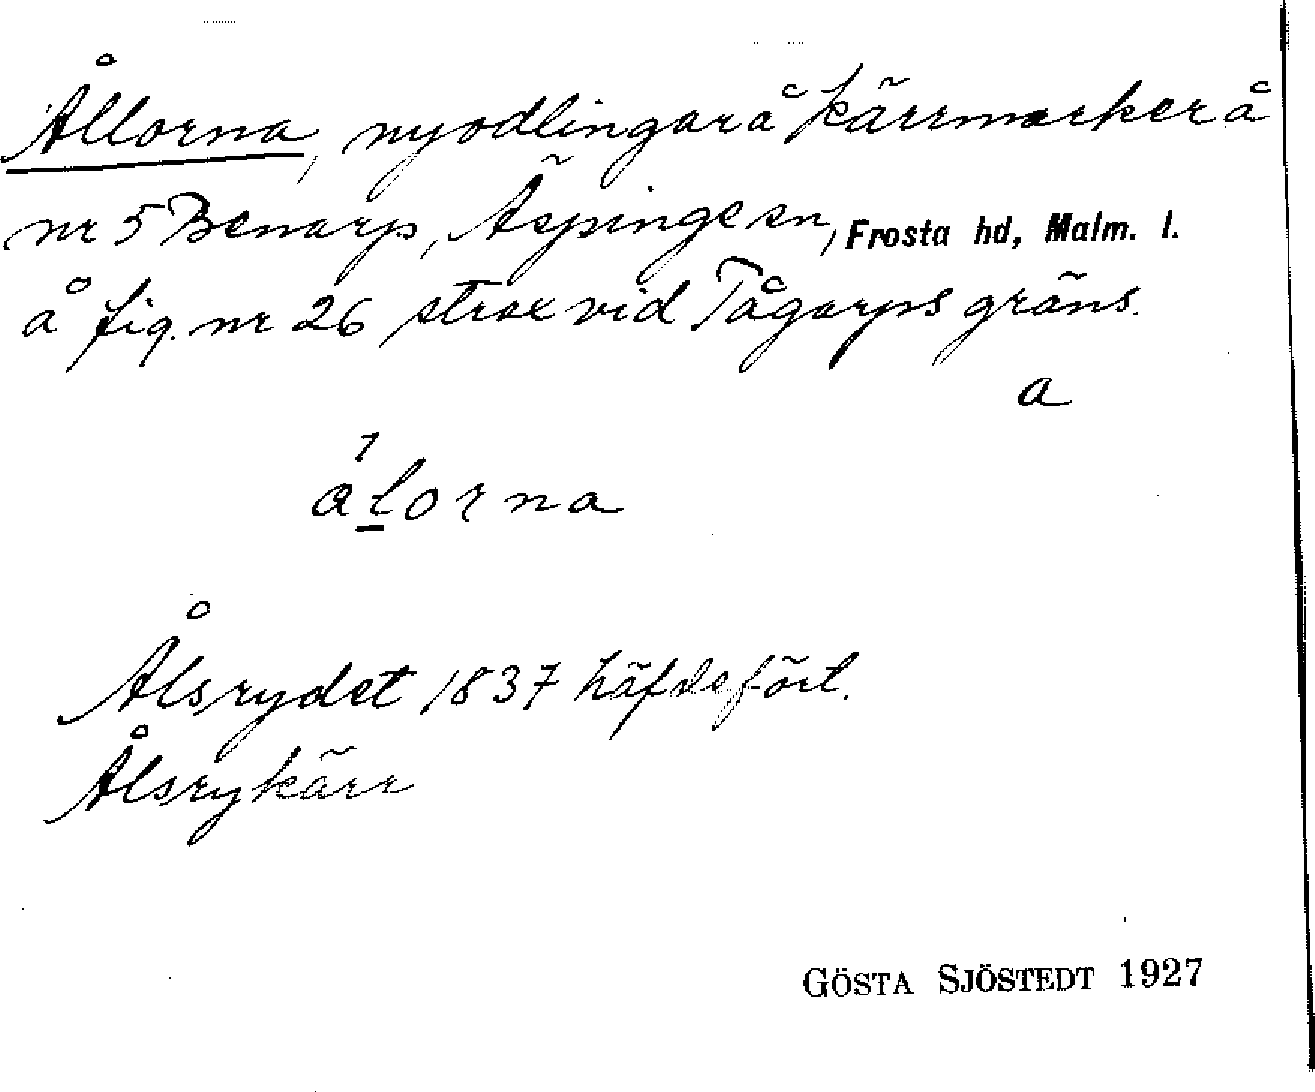 Ållorna, nyodlingar å kärrmarker å
nr 5 Benarp, Äspinge sn, Frosta hd, Malm. l.
å fig. nr 26 strax vid Tågarps gräns.
a
ålorna
Ålsrydet 1837 häfdeförl.
Ålsrykärr
GÖSTA SJÖSTEDT 1927